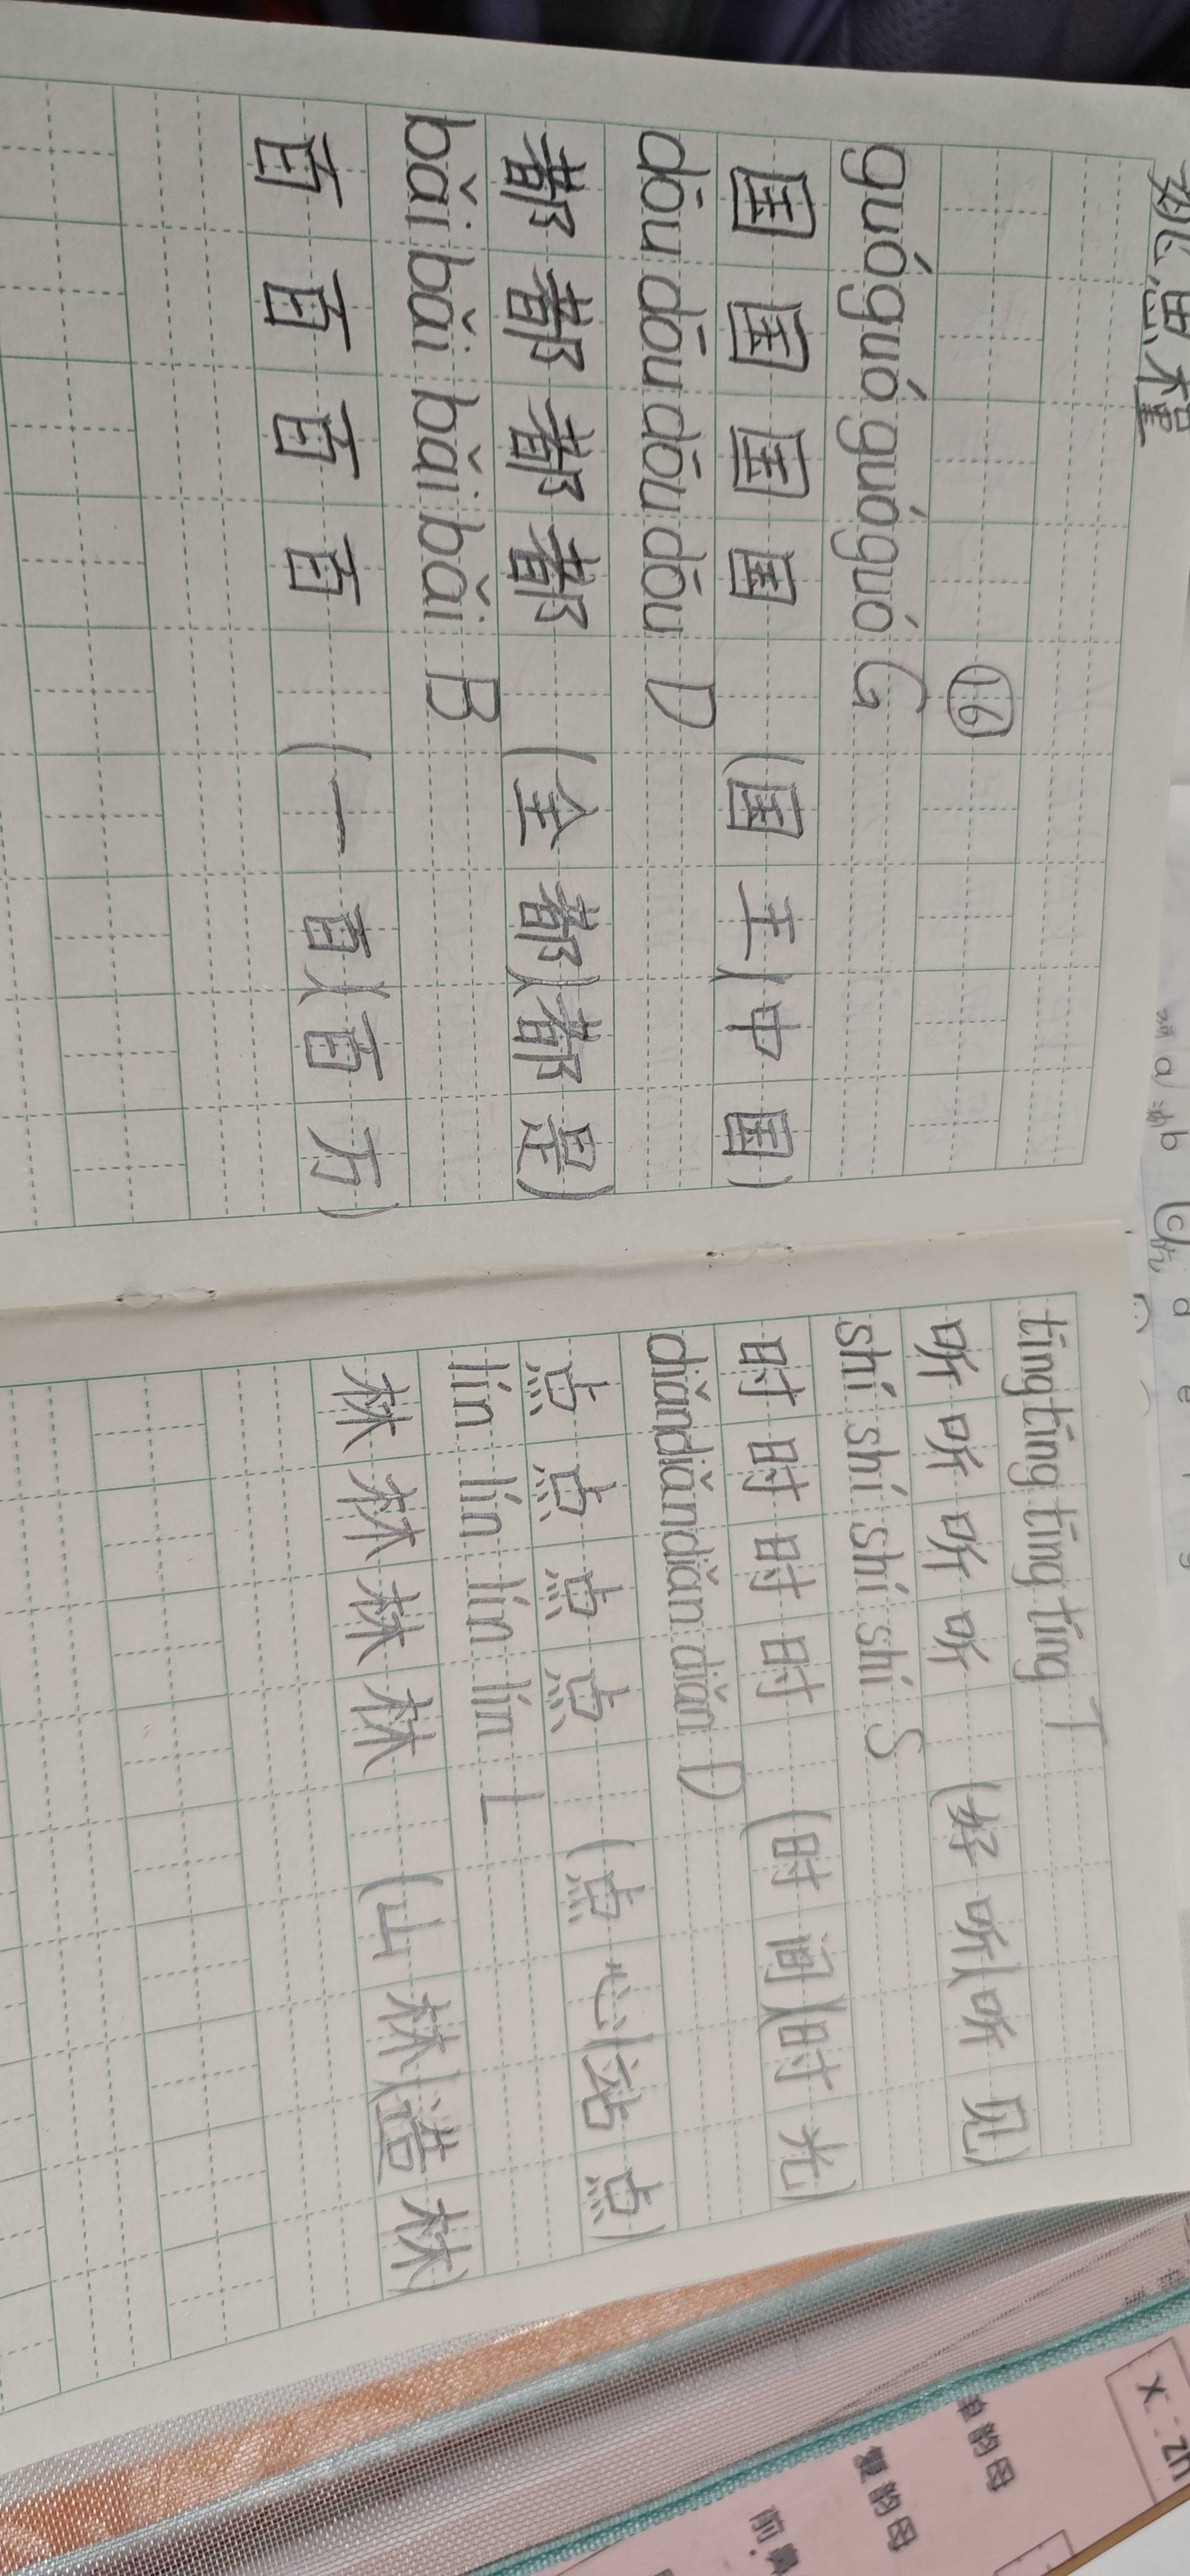 16
guó guó guó guó G
国 国 国 国 (国王)(中国)
dōu dōu dōu dōu D
都 都 都 都 (全都)(都是)
bǎi bǎi bǎi bǎi B
百 百 百 百 (一百)(百万)
tīng tīng tīng tīng T
听 听 听 听 (好听)(听见)
shí shí shí shí S
时 时 时 时 (时间)(时光)
diǎn diǎn diǎn diǎn D
点 点 点 点 (点心)(站点)
lín lín lín lín L
林 林 林 林 (山林)(造林)
a b c d e
x zh
单韵母
复韵母
前鼻